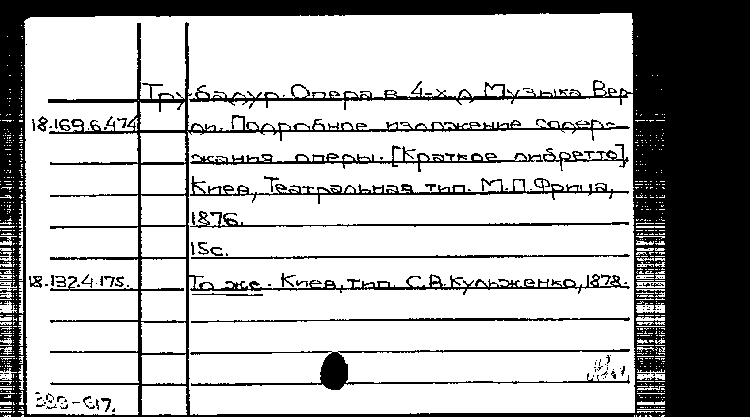 Трубадур. Опера в 4-х д. Музыка Вер-
18.169.6.474 ди. Подробное изложение содер-
жания оперы. [Краткое либретто].
Киев, Театральная тип. М.П.Фрица,
1876.
15с.
18.132.4.175. То же. Киев, тип. С.В.Кульженко, 1878.